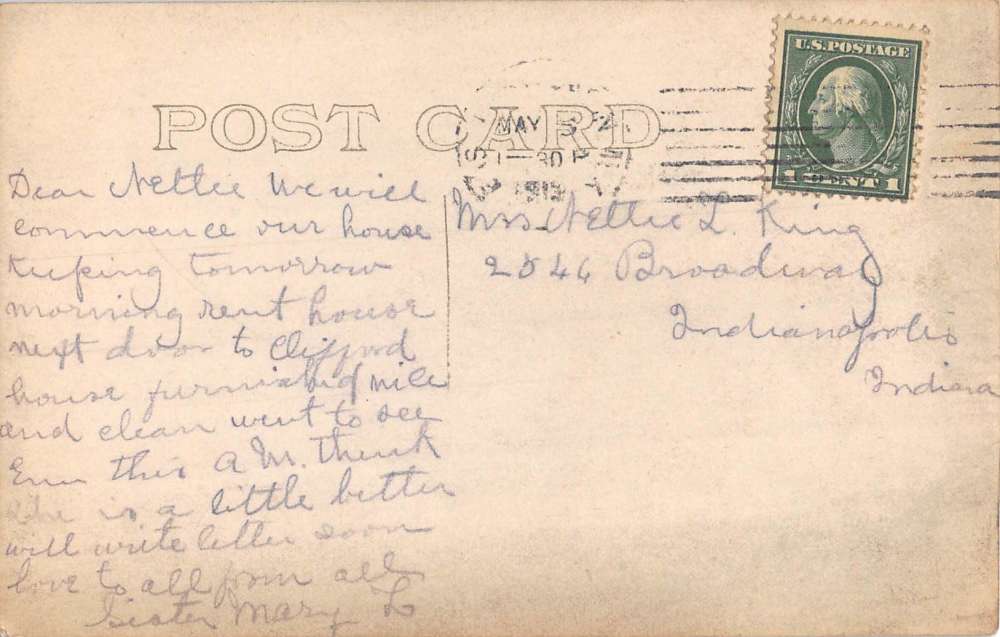 POST CARD
U.S. POSTAGE
1 CENT 1
MAY 3
1-30 P
Dear Nettie We will
commence our house
keeping tomorrow
morning rent house
next door to Clifford
house furnished nice
and clean went to see
this A M. think
she is a little better
will write letter soon
love to all from all
Sister Mary L
Mrs Nettie L. King
2546 Broadway
Indianapolis
Indiana